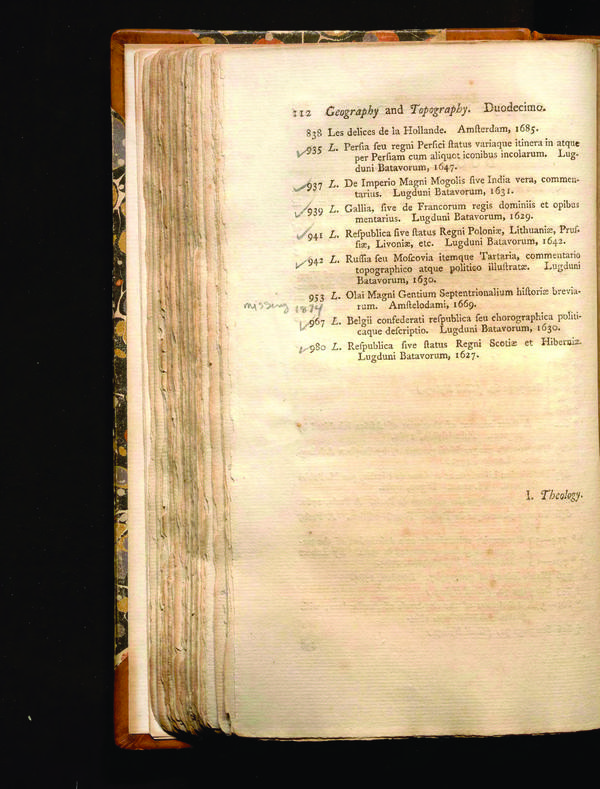 112 Geography and Topography. Duodecimo.
838 Les delices de la Hollande. Amſterdam, 1685.
935 L. Perſia ſeu regni Perſici ſtatus variaque itinera in atque
per Perſiam cum aliquot iconibus incolarum. Lug-
duni Batavorum, 1647.
937 L. De Imperio Magni Mogolis ſive India vera, commen-
tarius. Lugduni Batavorum, 1631.
939 L. Gallia, ſive de Francorum regis dominiis et opibus
mentarius. Lugduni Batavorum, 1629.
941 L. Reſpublica ſive ſtatus Regni Poloniæ, Lithuaniæ, Pruſ-
ſiæ, Livoniæ, etc. Lugduni Batavorum, 1642.
942 L. Ruſſia ſeu Moſcovia itemque Tartaria, commentario
topographico atque politico illuſtratæ. Lugduni
Batavorum, 1630.
953 L. Olai Magni Gentium Septentrionalium hiſtoriæ brevia-
missing 1874 rum. Amſtelodami, 1669.
967 L. Belgii confederati reſpublica ſeu chorographica politi-
caque deſcriptio. Lugduni Batavorum, 1630.
980 L. Reſpublica ſive ſtatus Regni Scotiæ et Hiberniæ.
Lugduni Batavorum, 1627.
I. Theology.